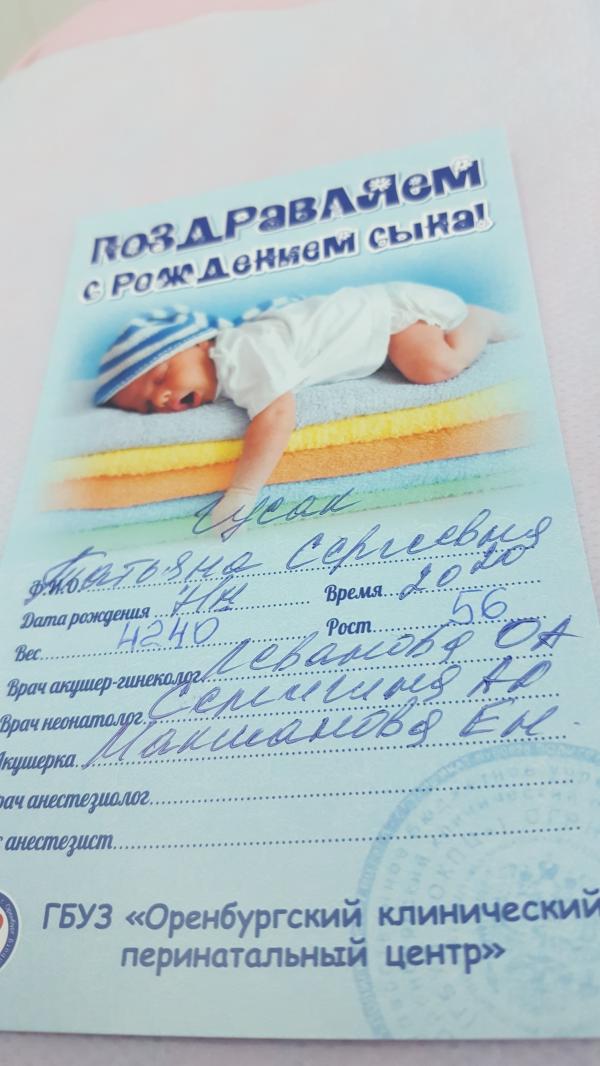 ПОЗДРАВЛЯЕМ
С РОЖДЕНИЕМ СЫНА!
Гусак
Ф.И.О. Татьяна Сергеевна
Дата рождения Время 20 20
Вес 4240 Рост 56
Врач акушер-гинеколог Леванова ОА
Врач неонатолог
Акушерка ЕН.
Врач анестезиолог
анестезист
ГБУЗ «Оренбургский клинический
перинатальный центр»